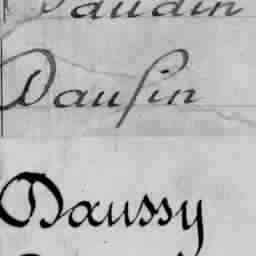 Daudin
Dauſin
Daussy